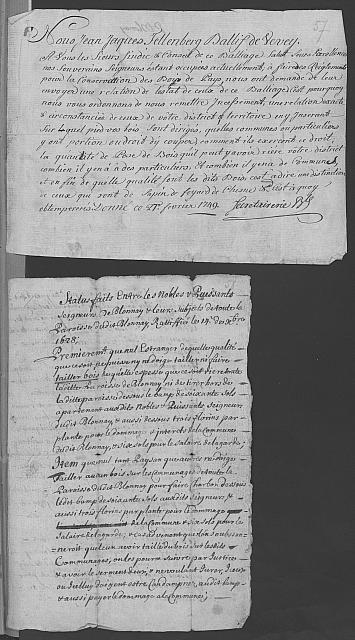 Nous Jean Jaques Fellenberg Ballif de Vevey
A Vous les Sieurs Sindic & Consul de ce Balliage Salut. Leurs Excellences
nos Souverains Seigneurs étans occupées actuellement, à faire des Règlements
pour la Conservation des Bois du Pays, nous ont demandé de leur
envoyer une relation de l'état de ceux de ce Balliage. C'est pourquoy
nous vous ordonnons de nous remettre incessament, une relation exacte
& circonstanciée de ceux de votre district & territoire en y inserant
Sur quel pied vos bois sont dirigés, quelles communes ou particuliers
y ont portion ou droit du coupage, comment ils exercent ce droit,
la quantité de Pose de Bois qu'il peut y avoir rière votre district
combien il y en a à des particuliers, et combien il y en a de Commune,
et en fin de quelle qualité sont les dits Bois, c'est à dire une distinction
de ceux qui sont de Sapin de foyard de Chesne &c. C'est à quoy
obtempererés. Donné ce 27e fevrier 1749.
Status faits Entre les Nobles & Puissants
Seigneurs de Blonnay & leurs Subjects de toute la
Paroisse dudit Blonnay Rattiffiés le 14e de Xbre
1628
Premierement que nul Estranger de quelle qualité
que ce soit ne puisse ny ne doige tailler ni faire
tailler bois de quelle espesse que ce soit
ladite Paroisse de Blonnay ni les tirer hors de
la ditte paroisse dessous le bamp de soixante sols
apartenant aux dits Nobles & Puissants Seigneurs
dudit Blonnay & aussi trois florins par
plante pour le dommage & interets de la Commune
dudit Blonnay, & six sols pour le salaire de la garde.
Item que nul tant Paysan que autres ne doige
tailler aucun bois sur les Communages de toute la
Paroisse dudit Blonnay pour faire Charbon dessous
le dit bamp de soixante sols aux dits seigneurs &
aussi trois florins par plante pour le dommage
de la Commune & six sols pour le
salaire de la garde; & cas advenant que l'on soubson-
neroit quelcun avoir taillé du bois sur les dits
Communages, on les pourra suivre par Justice
& avoir le serment d'eux, & ne voulant Jurer, d'iceux
ou d'icelluy doigent estre Condamnez, audit bamp
& aussi payer le dommage a la Commune;